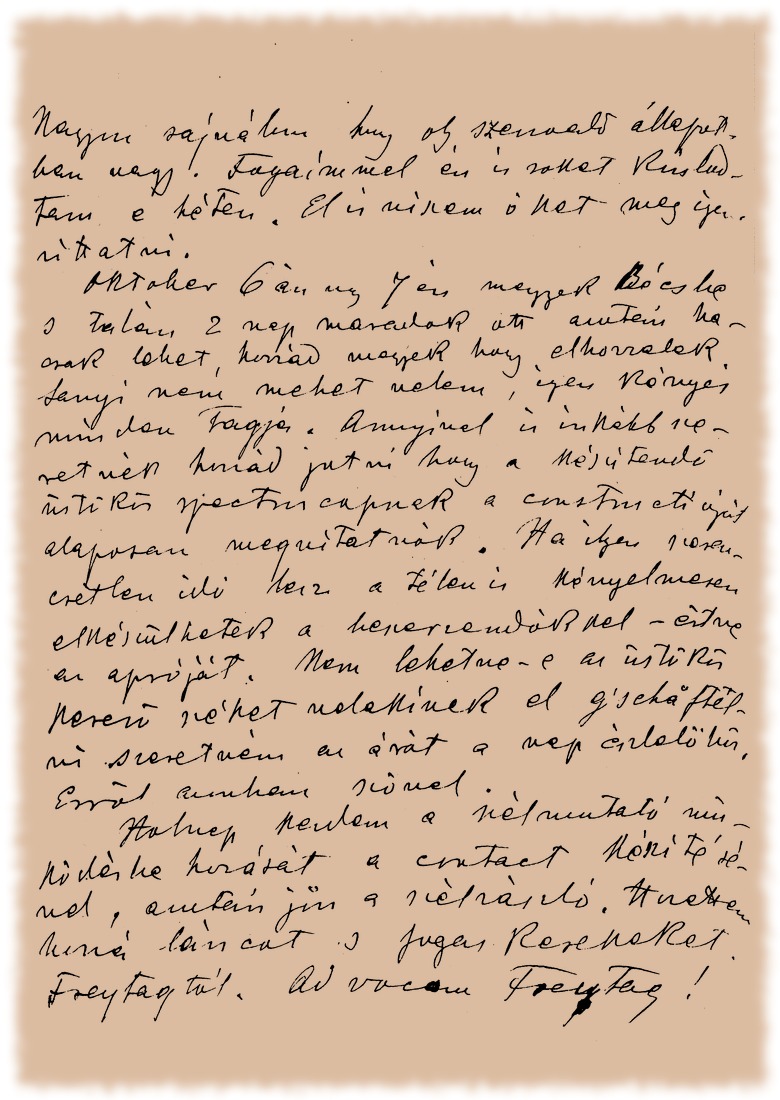 Nagyon sajnálom hogy oly szenvedő állapot-
ban vagy. Fogaimmal én is sokat küszköd-
tem e héten. El is viszem őket meg igaz-
sittatni.
Oktober 6án vagy 7én megyek Bécsbe
s talán 2 nap maradok ott azután ha
csak lehet, hozzád megyek hogy elhozzalak
Sanyi nem mehet velem, igen kényes
minden tagja. Annyival is inkább sze-
retnék hozzád jutni hogy a készítendő
üstökös spectroscopnak a constructióját
alaposan megvitatnók. Ha ilyen szeren-
csétlen idő lesz a télen is kényelmesen
elkészülhetek a beszerzendőkkel – értve
az apróját. Nem lehetne-e az üstökös
kereső széket valakinek el g'schäftel-
ni szeretném az árát a nap észlelőhöz.
Erről azonban szóval.
Holnap kezdem a szélmutató mű-
ködésbe hozását a contact készítésé-
vel, azután jön a szélrászló. Hozattam
hozzá láncot s fogas kerekeket
Freytagtól. Ad vocem Freytag!